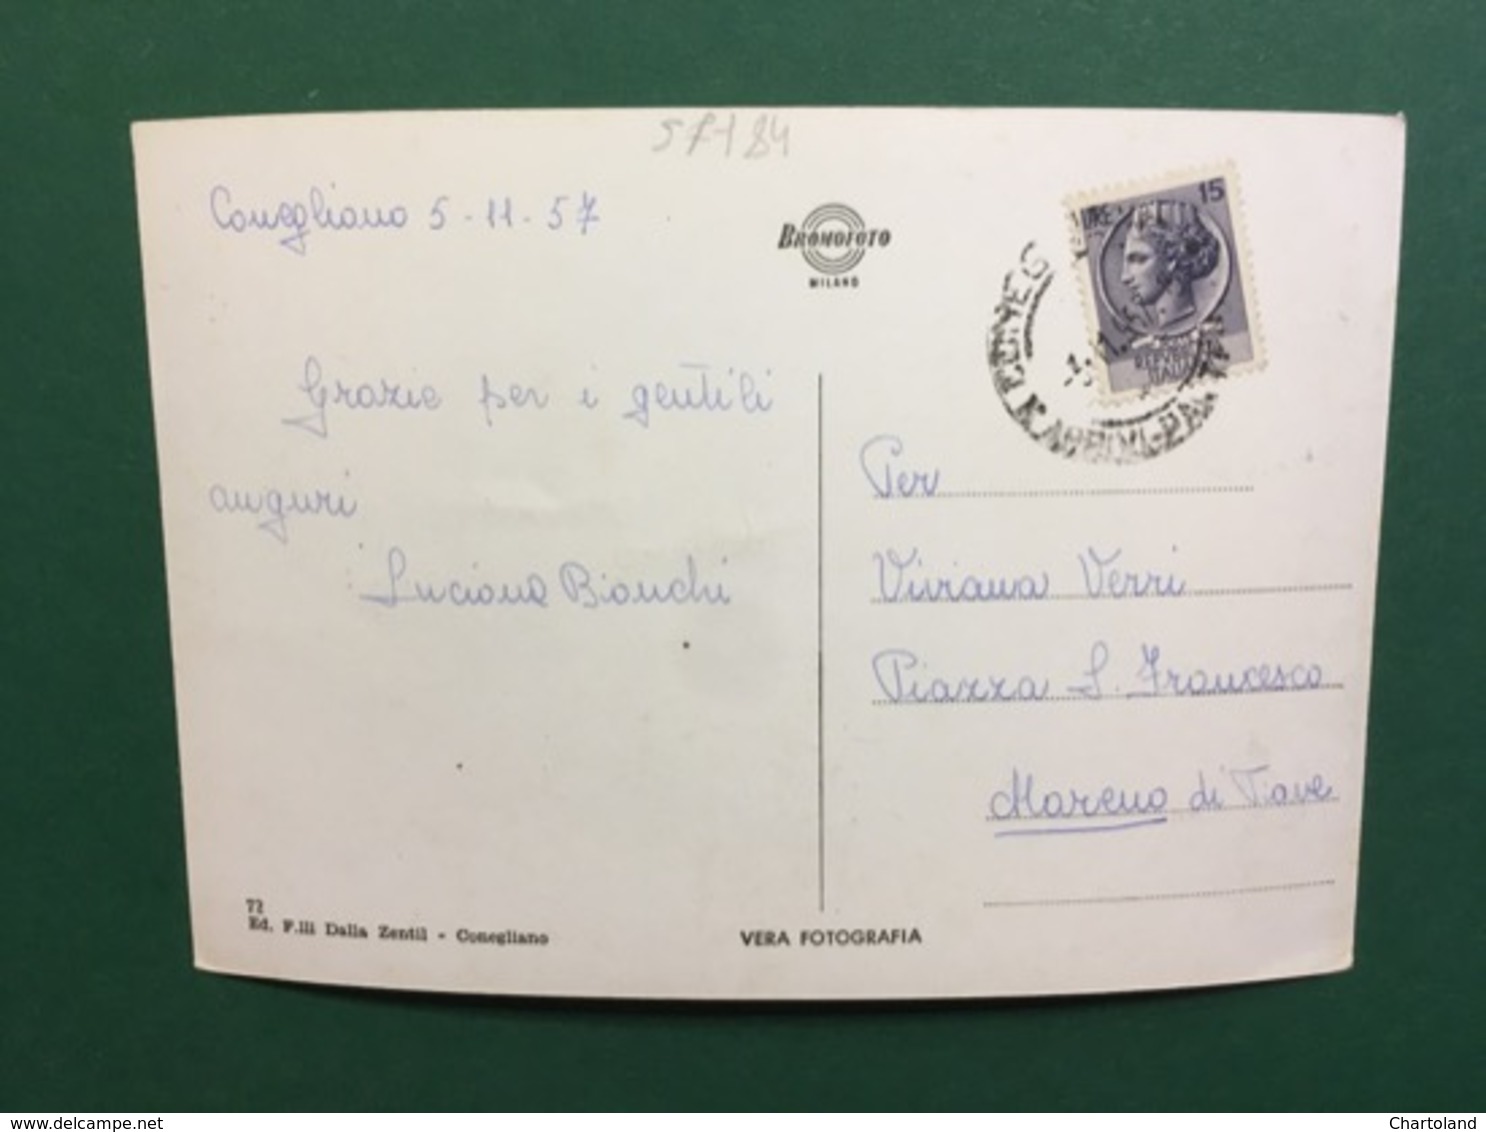 5f-184
Conegliano 5-11-57
BROMOFOTO
MILANO
15
LIRE
REPVBBLICA
ITALIANA
Grazie per i gentili
auguri
Luciana Bianchi
Per
Viviana Verri
Piazza S. Francesco
Mareno di Piave
72
Ed. F.lli Dalla Zentil - Conegliano
VERA FOTOGRAFIA
www.delcampe.net
Chartoland